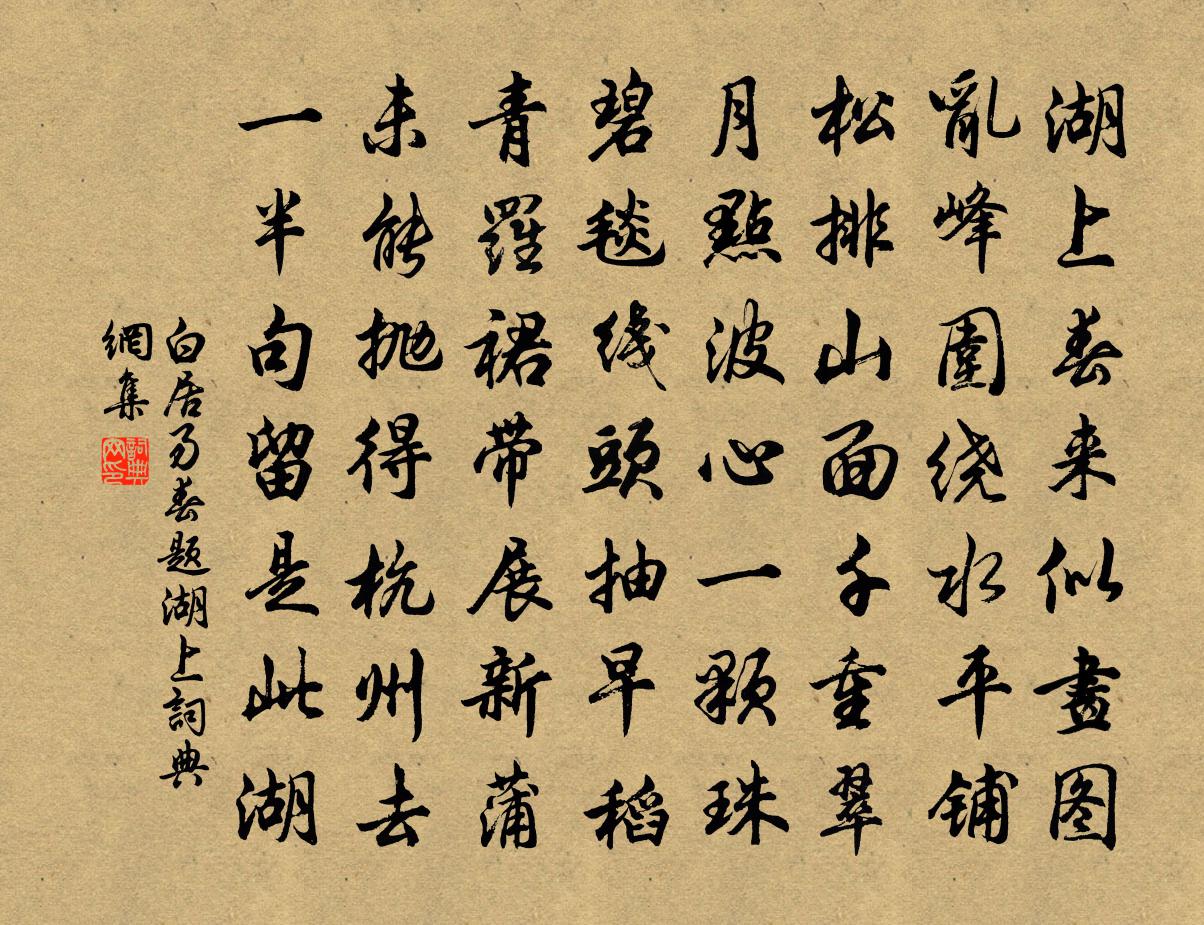 湖上春来似畫图
亂峰圍绕水平铺
松排山面千重翠
月點波心一顆珠
碧毯线頭抽早稻
青羅裙带展新蒲
未能抛得杭州去
一半句留是此湖
白居易春题湖上詞典
網集
詞典网印